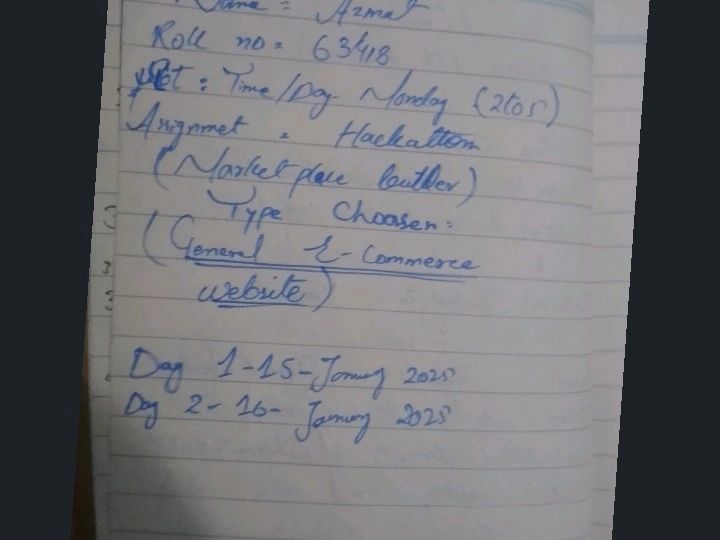 Name = Azmat
Roll no = 63418
Slot : Time/Day- Monday (2to5)
Asignmet = Hackattom
(Market place buillder)
Type Choosen:
(General E-Commerce
website)
Day 1-15-January 2025
Day 2-16- January 2025